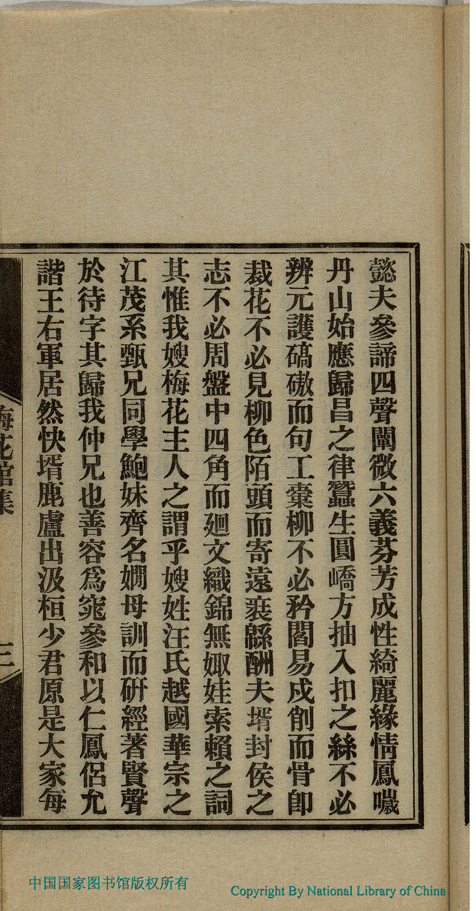 懿夫參諦四聲闡微六義芬芳成性綺麗緣情鳳噦
丹山始應歸昌之律蠶生圓嶠方抽入扣之絲不必
辨元護碻磝而句工棗柳不必矜閣易戍削而骨卽
裁花不必見柳色陌頭而寄遠裘緜酬夫壻封侯之
志不必周盤中四角而廻文織錦無娵娃索賴之詞
其惟我嫂梅花主人之謂乎嫂姓汪氏越國華宗之
江茂系甄兄同學鮑妹齊名嫺母訓而硏經著賢聲
於待字其歸我仲兄也善容爲窕參和以仁鳳侶允
諧王右軍居然快壻鹿盧出汲桓少君原是大家每
梅花館集
三
中国国家图书馆版权所有
Copyright By National Library of China